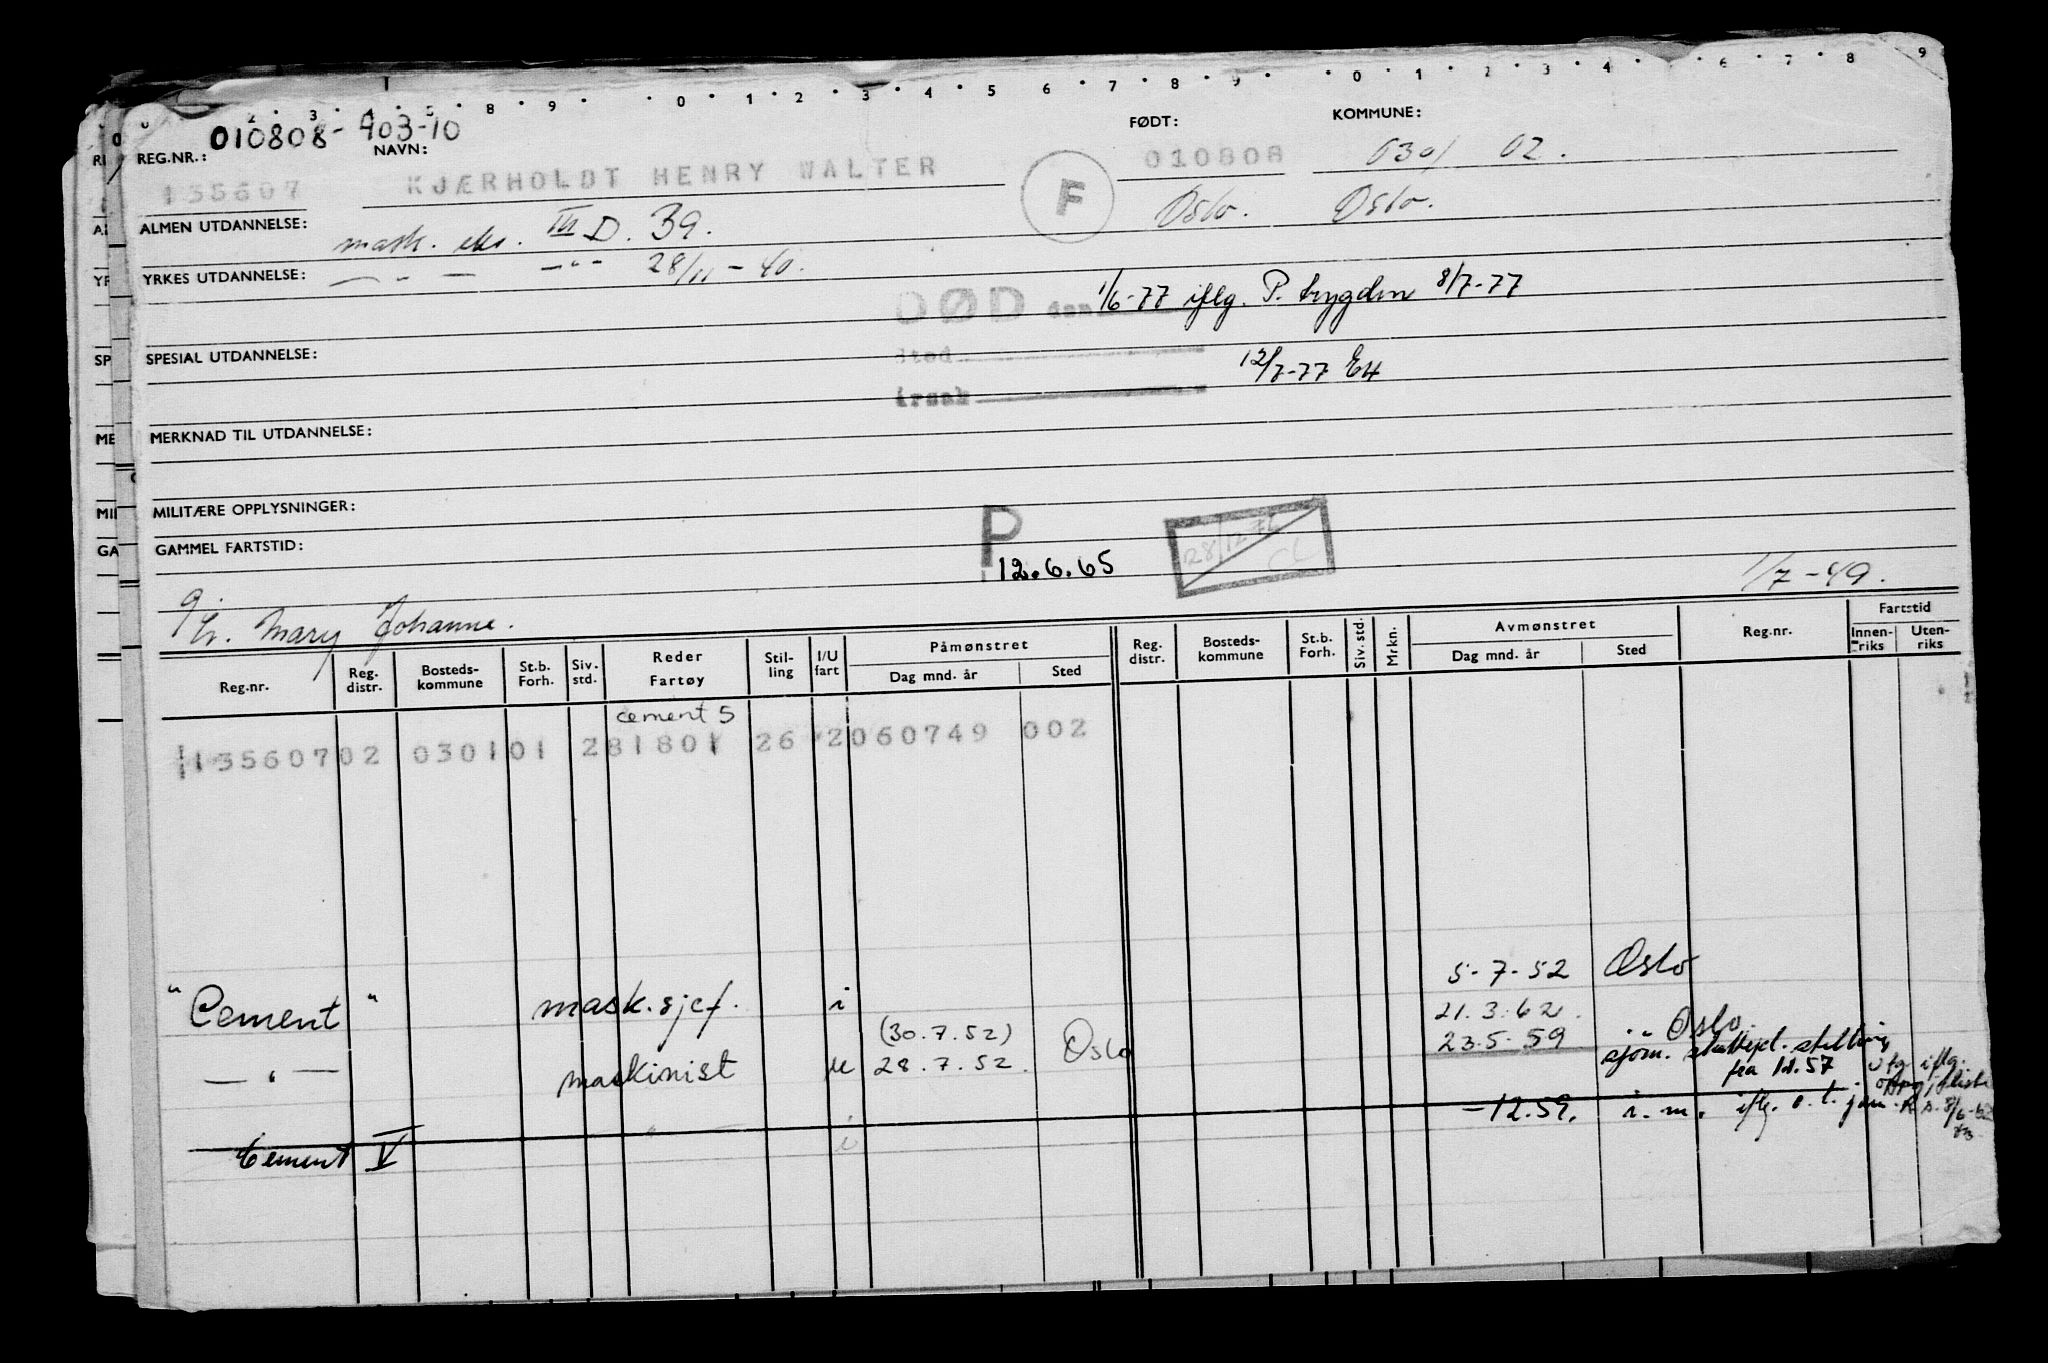 010808-403-10
REG.NR.: NAVN: FØDT: KOMMUNE:
135607 KJÆRHOLDT HENRY WALTER F 010808 0301 02.
ALMEN UTDANNELSE: mask. eks. III D. 39. Oslo. Oslo.
YRKES UTDANNELSE: — " — — " — 28/11-40.
DØD den 1/6-77 iflg. P. trygden 8/7-77
SPESIAL UTDANNELSE: sted 12/7-77 EH
årsak
MERKNAD TIL UTDANNELSE:
MILITÆRE OPPLYSNINGER:
GAMMEL FARTSTID: P 12.6.65 28/12 CL
1/7-49.
Mary Johanne.
Reg.nr. Reg. distr. Bosteds-kommune St.b. Forh. Siv. std. Reder Fartøy Stil-ling I/U fart Påmønstret Dag mnd. år Sted Reg. distr. Bosteds-kommune St.b. Forh. Siv. std. Mrkn. Avmønstret Dag mnd. år Sted Reg.nr. Fartstid Innen-riks Uten-riks
cement 5
13560702 030101 281801 26 2060749 002
5-7-52 Oslo
" Cement " mask.sjef. i 21.3.62. Oslo
(30.7.52) 23.5.59 sjøm. stilling
— " — maskinist u 28.7.52. Oslo fra 57 iflg.
-12.59. i. m. iflg. o.t. 8/6-62
Cement V " i